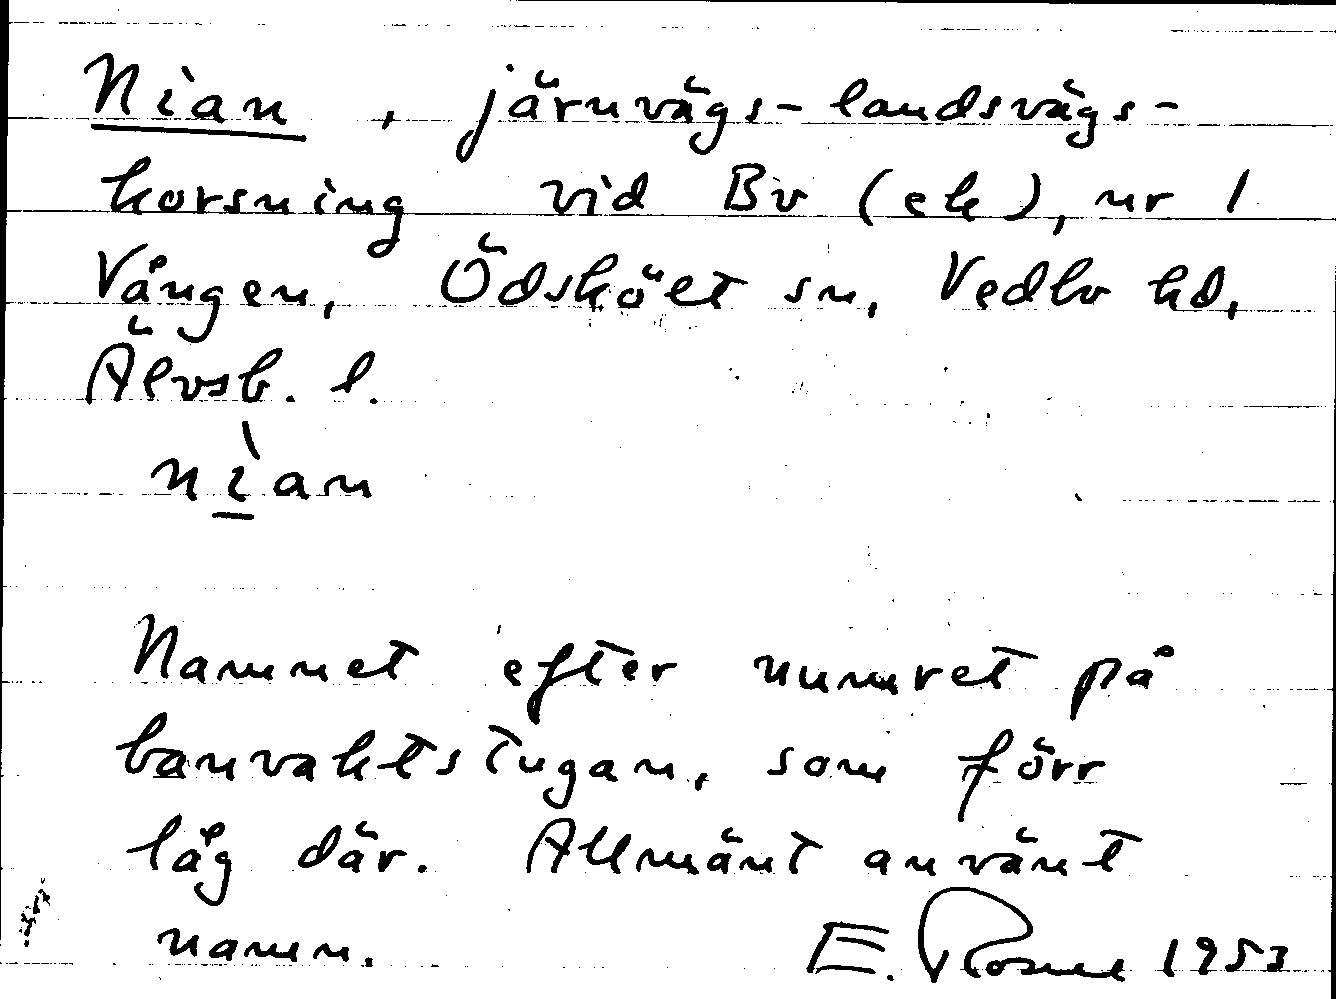 Nian, järnvägs- landsvägs-
korsning vid Bv (ek), nr 1
Vången, Ödskölt sn, Vedbo hd,
Älvsb. l.
nìan
Namnet efter numret på
banvaktstugan, som förr
låg där. Allmänt använt
namn.
E. Rosell 1953